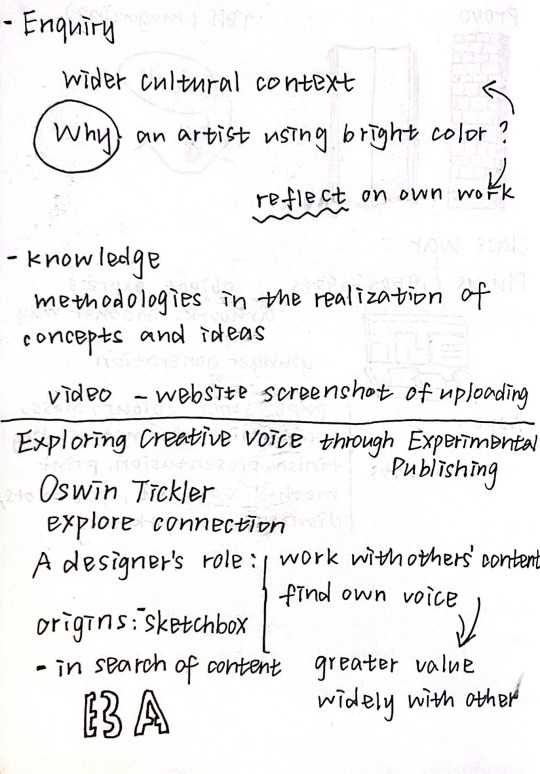 - Enquiry
wider cultural context
Why: an artist using bright color?
reflect on own work
- knowledge
methodologies in the realization of
concepts and ideas
video - website screenshot of uploading
Exploring Creative Voice through Experimental
Publishing
Oswin Tickler
explore connection
A designer's role: work with others' content
find own voice
origins: sketchbox
- in search of content greater value
widely with other